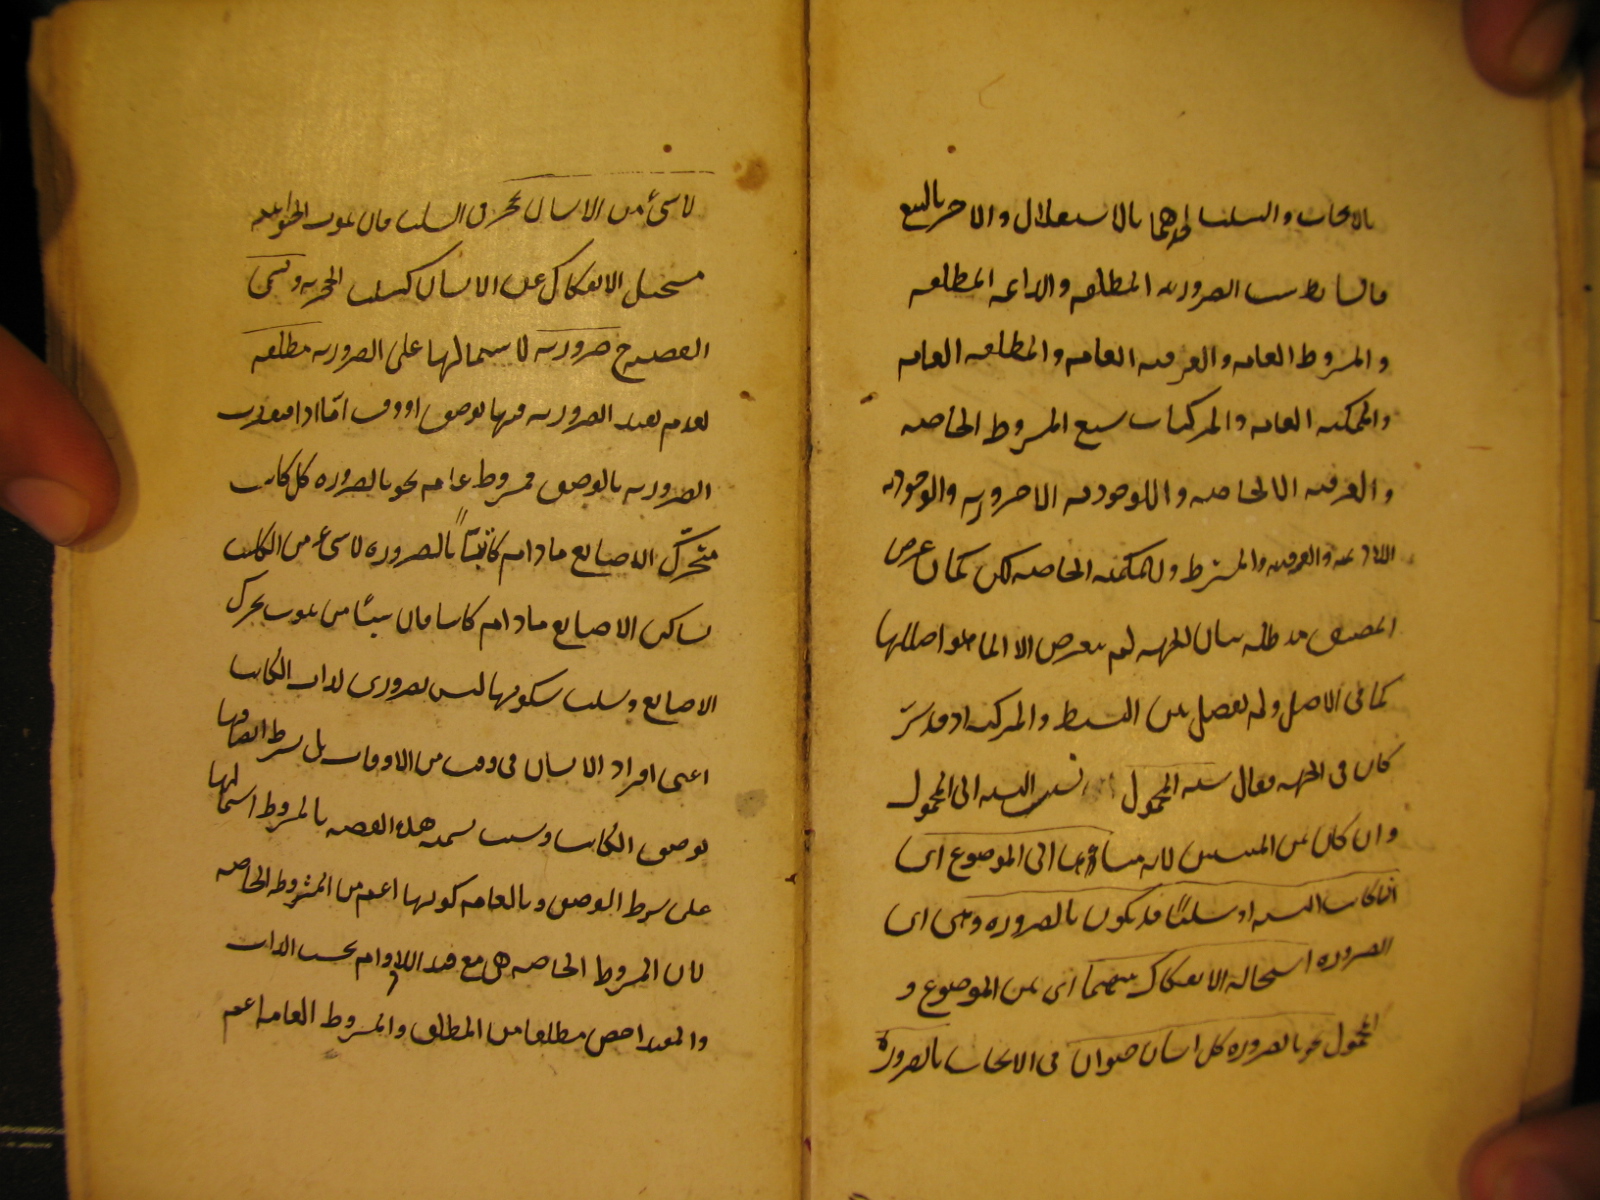 بالايجاب والسلب احدهما بالاستقلال والاخر بالتبع
فالبسايط ست الضروريه المطلقه والدائمه المطلقه
والمشروط العامه والعرفيه العامه والمطلقه العامه
والممكنه العامه والمركبات سبع المشروط الخاصه
والعرفيه الخاصه والوجوديه اللاضروريه والوجوديه
اللادائمه والوقتيه والمنتشره والممكنه الخاصه لكن كان غرض
المصنف بيان الجهه لم يتعرض الا لما هو اصلها
كما في الاصل ولم يفصل بين البسيط والمركبه
كان في الجهه فقال نسبه المحمول نسب النسبه الى المحمول
وان كان بين المنتسبين لانه الى الموضوع اى
النسبه او سلبًا قد يكون بالضروره وهى اى
الضروره استحاله الانفكاك بينهما اى بين الموضوع و
المحمول نحو بالضروره كل انسان حيوان فى الايجاب بالضروره
لا شئ من الانسان بحجر فى السلب فان ثبوت الحيوانيه
مستحيل الانفكاك عن الانسان كسلب الحجريه وتسمى
القضيه ح ضروريه لاشتمالها على الضروريه مطلقه
لعدم تقييد الضروريه فيها بوصف او وقت امّا اذا قيدت
الضروريه بالوصف فمشروط عامه نحو بالضروره كل كاتب
متحرّك الاصابع مادام كاتبًا بالضروره لا شئ من الكاتب
بساكن الاصابع مادام كاتبا فان شيئًا من ثبوت تحرك
الاصابع وسلب سكونها ليس بضرورى لذات الكاتب
اعنى افراد الانسان فى وقت من الاوقات بل بشرط اتصافها
بوصف الكاتب وسبب تسميه هذه القضيه بالمشروط اشتمالها
على شرط الوصف وبالعامه كونها اعم من المشروطه الخاصه
لان المشروط الخاصه هى مع قيد اللادوام بحسب الذات
والمقيد اخص مطلقا من المطلق والمشروط العامه اعم